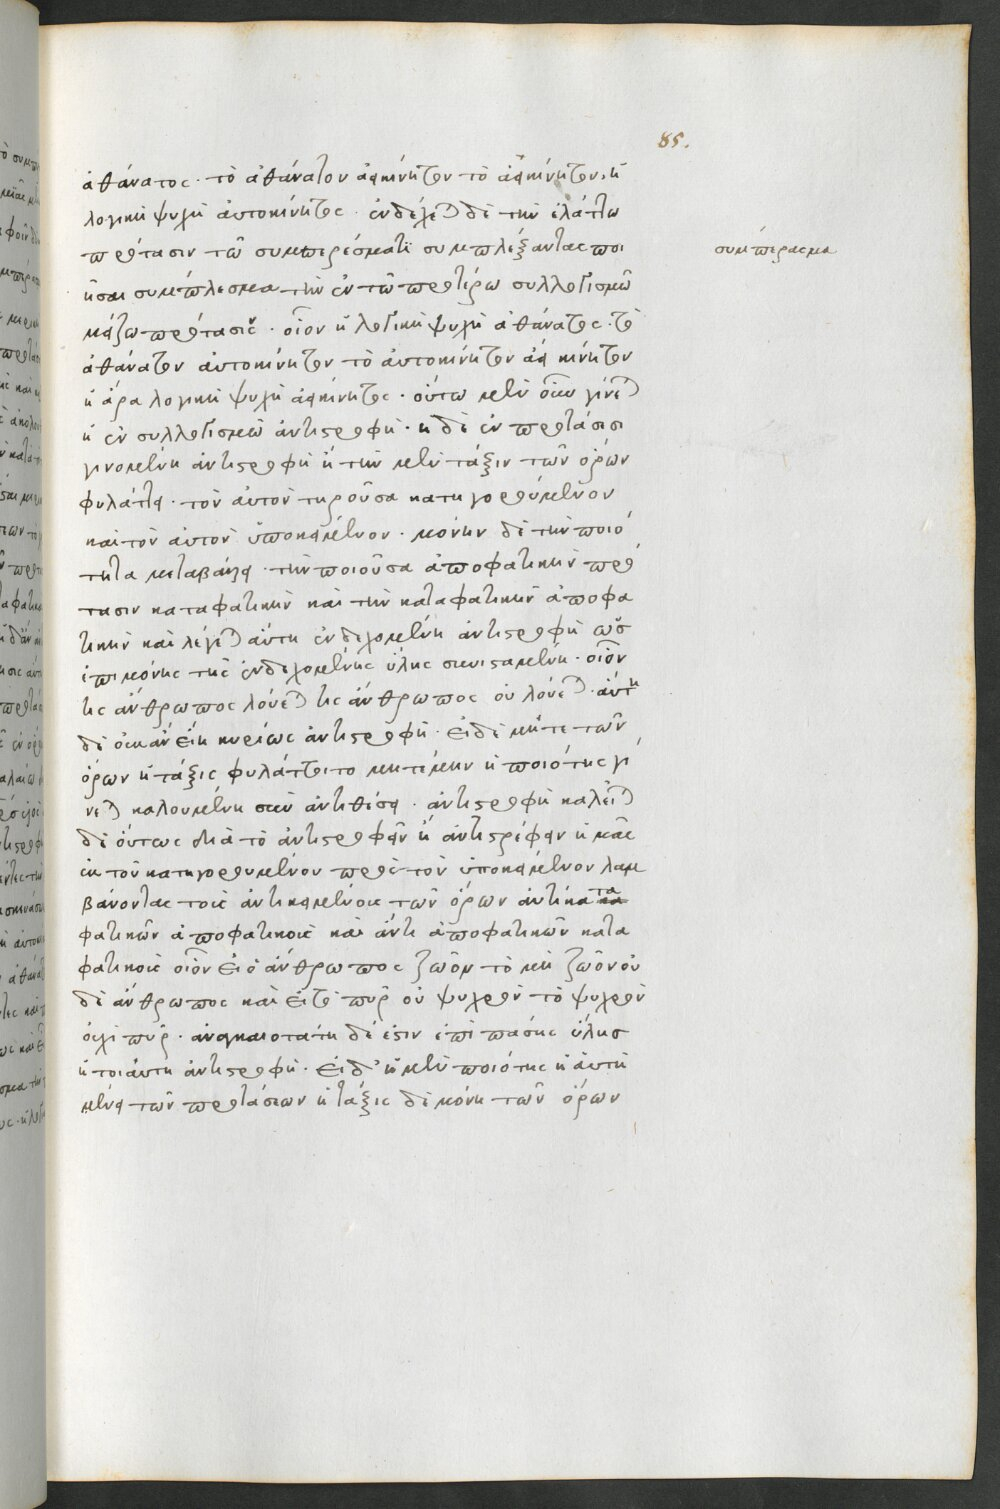 85.
ἀθάνατος · τὸ ἀθάνατον ἀεικίνητον τὸ ἀεικίνητον · ἡ
λογικὴ ψυχὴ αὐτοκίνητος · ἐνδέχεται δὲ τὴν ἐλάττω
πρότασιν τῶ συμπερέσματι συμπλέξαντας ποι
ῆσαι συμπλεσμα τὴν ἐν τῶ προτέρω συλλογισμῶ
μείζω πρότασιν · οἷον ἡ λογικὴ ψυχὴ ἀθάνατος · τὸ
συμπέρασμα
ἀθάνατον αὐτοκίνητον τὸ αὐτοκίνητον ἀεικίνητον
ἡ ἄρα λογικὴ ψυχὴ ἀεικίνητος · οὕτω μὲν οὖν γίνεται
ἡ ἐν συλλογισμῶ ἀντιστροφὴ · ἡ δὲ ἐν προτάσεσι
γινομένη ἀντιστροφὴ ἢ τὴν μὲν τάξιν τῶν ὅρων
φυλάττει · τὸν αὐτὸν τηροῦσα κατηγορούμενον
καὶ τὸν αὐτὸν ὑποκείμενον · μόνην δὲ τὴν ποιό
τητα μεταβάλλει · τὴν ποιοῦσα ἀποφατικὴν πρό
τασιν καταφατικὴν καὶ τὴν καταφατικὴν ἀποφα
τικὴν καὶ λέγεται αὕτη ἐνδεχομένη ἀντιστροφὴ ὡς
ἐπι μόνης τῆς ἐνδεχομένης ὕλης συνισταμένη · οἷον
τις ἄνθρωπος λούεται τις ἄνθρωπος οὐ λούεται · αὕτη
δὲ οὐκ ἂν εἴη κυρίως ἀντιστροφὴ · εἰ δὲ μήτε τῶν
ὅρων ἡ τάξις φυλάττοιτο μητέμην ἡ ποιότης γί
νεται καλουμένη σὺν ἀντιθέσει · ἀντιστροφὴ καλεῖται
δὲ οὕτως διὰ τὸ ἀντιστροφεῖν ἢ ἀντιστρέφειν ἡμᾶς
ἐκ τὸν κατηγορουμένον πρὸς τὸν ὑποκείμενον λαμ
βάνοντας τοῖς ἀντικειμένοις τῶν ὅρων ἀντὶ κατα
φατικῶν ἀποφατικοῖς καὶ ἀντι ἀποφατικῶν κατα
φατικοῖς οἷον εἰ ὁ ἄνθρωπος ζῶον τὸ μὴ ζῶον οὐ
δὲ ἄνθρωπος καὶ εἰ τὸ πῦρ οὐ ψυχρὸν τὸ ψυχρὸν
οὐχὶ πῦρ · ἀναγκαιοτάτη δέ ἐστιν ἐπὶ πάσης ὕλης
ἡ τοιαύτη ἀντιστροφὴ · εἰ δ' ἡ μὲν ποιότης ἡ αὐτὴ
μένει τῶν προτάσεων ἡ τάξις δὲ μόνη τῶν ὅρων